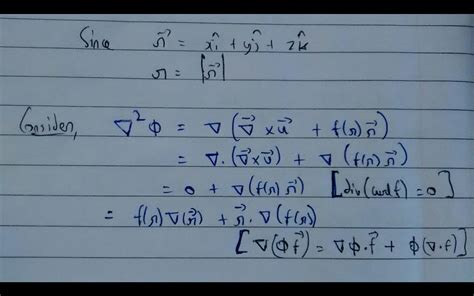 Since r⃗ = xî + yĵ + zk̂
r = |r⃗|
Consider, ∇²Φ = ∇(∇⃗ × u⃗ + f(r) r⃗)
= ∇.(∇⃗×v⃗) + ∇(f(r) r⃗)
= 0 + ∇(f(r) r⃗) [div(curl f) = 0]
= f(r) ∇(r⃗) + r⃗. ∇(f(r))
[∇(Φf⃗) = ∇Φ.f⃗ + Φ(∇.f)]